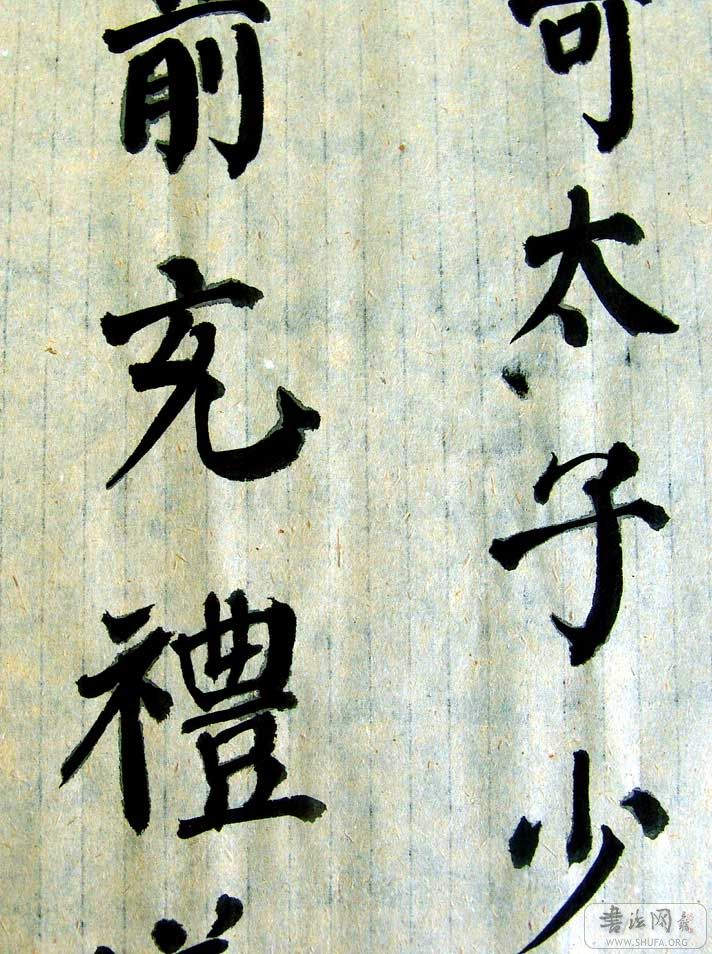 可太子少
前充禮
書法网
WWW.SHUFA.ORG